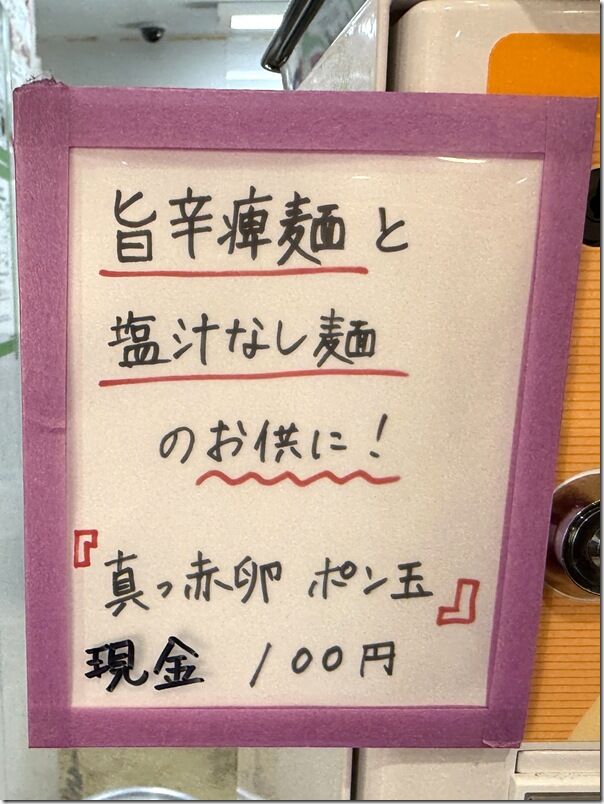 旨辛痺麺と
塩汁なし麺
のお供に!
『真っ赤卵 ポン玉』
現金 100円